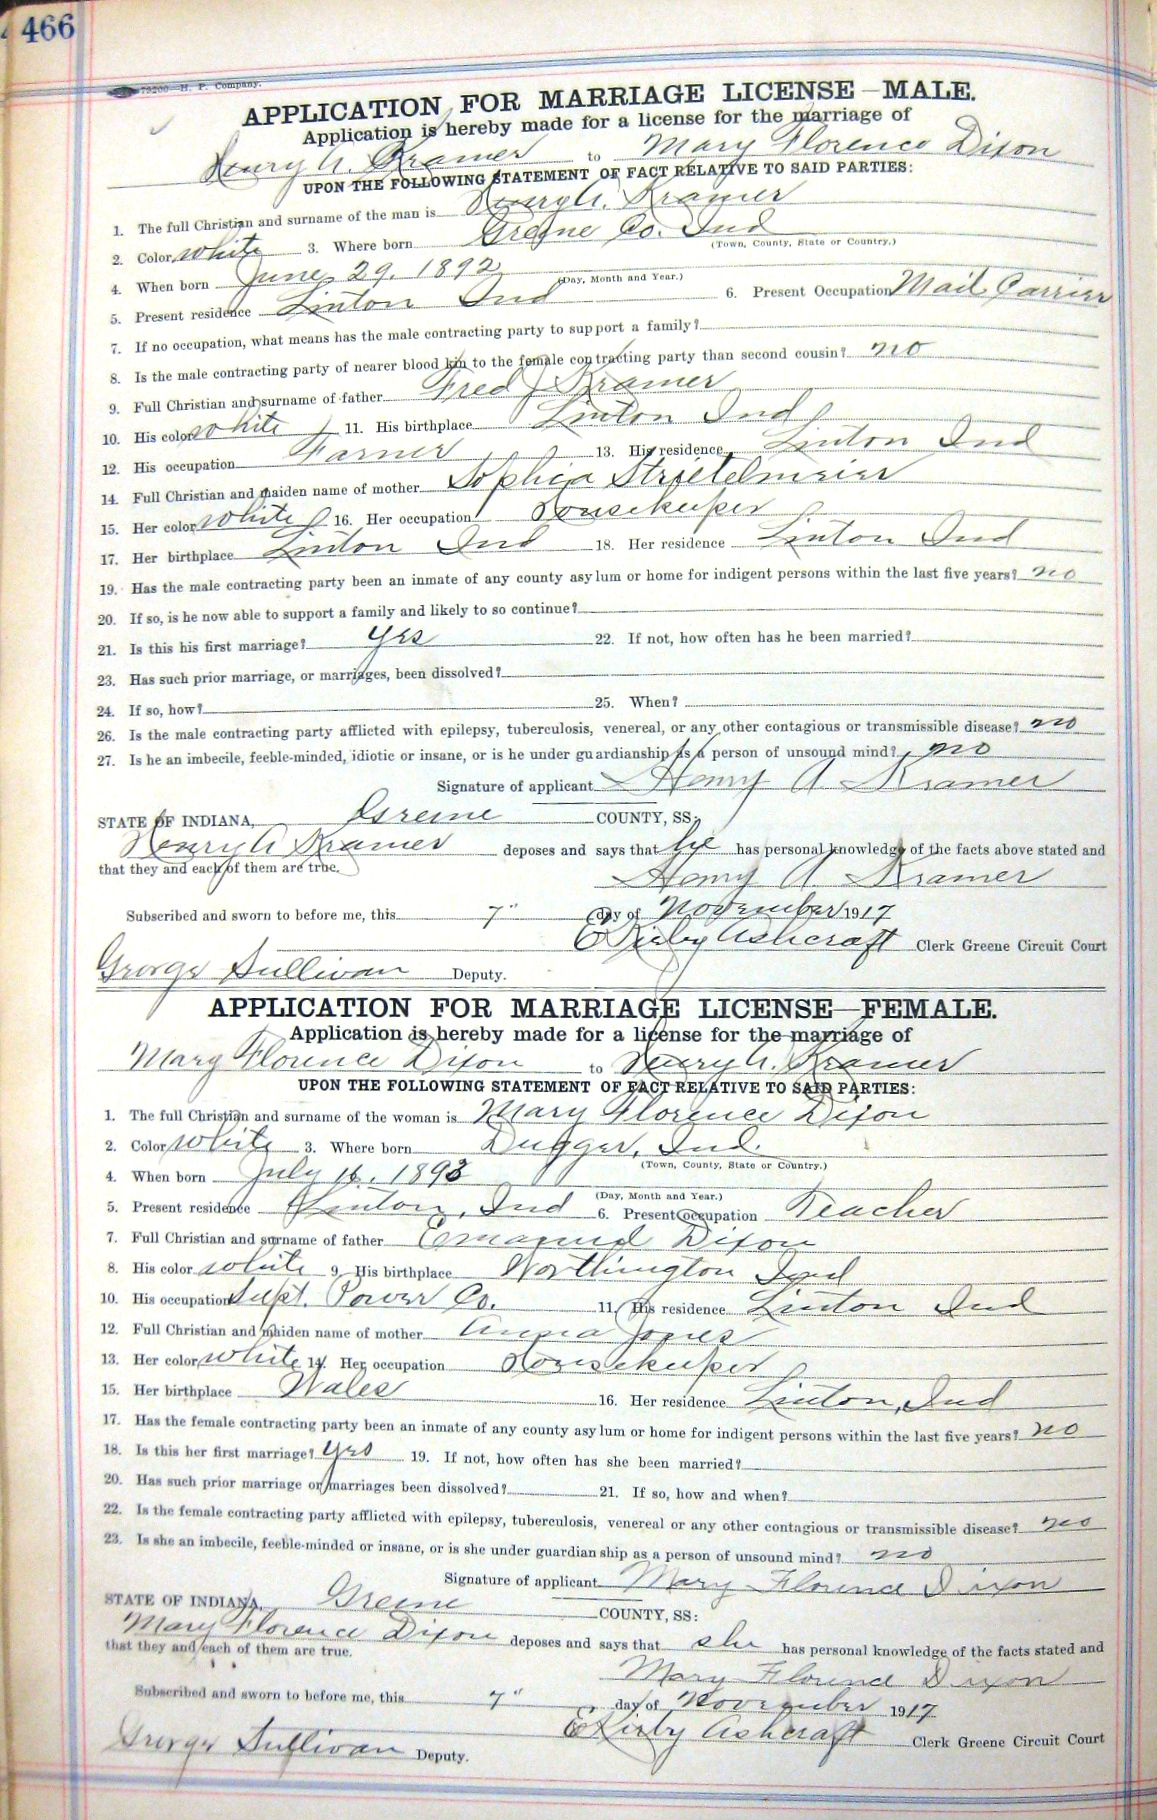 466
79200—H. P. Company.
APPLICATION FOR MARRIAGE LICENSE—MALE.
Application is hereby made for a license for the marriage of
Henry A. Kramer to Mary Florence Dixon
UPON THE FOLLOWING STATEMENT OF FACT RELATIVE TO SAID PARTIES:
1. The full Christian and surname of the man is Henry A. Kramer
2. Color white 3. Where born Greene Co. Ind
(Town, County, State or Country.)
4. When born June 29, 1892
(Day, Month and Year.)
5. Present residence Linton Ind 6. Present Occupation Mail Carrier
7. If no occupation, what means has the male contracting party to support a family?
8. Is the male contracting party of nearer blood kin to the female contracting party than second cousin? no
9. Full Christian and surname of father Fred J Kramer
10. His color white 11. His birthplace Linton Ind
12. His occupation Farmer 13. His residence Linton Ind
14. Full Christian and maiden name of mother Sophia Strietelmeier
15. Her color white 16. Her occupation Housekeeper
17. Her birthplace Linton Ind 18. Her residence Linton Ind
19. Has the male contracting party been an inmate of any county asylum or home for indigent persons within the last five years? no
20. If so, is he now able to support a family and likely to so continue?
21. Is this his first marriage? yes 22. If not, how often has he been married?
23. Has such prior marriage, or marriages, been dissolved?
24. If so, how? 25. When?
26. Is the male contracting party afflicted with epilepsy, tuberculosis, venereal, or any other contagious or transmissible disease? no
27. Is he an imbecile, feeble-minded, idiotic or insane, or is he under guardianship as a person of unsound mind? no
Signature of applicant Henry A Kramer
STATE OF INDIANA, Greene COUNTY, SS:
Henry A Kramer deposes and says that he has personal knowledge of the facts above stated and
that they and each of them are true. Henry A. Kramer
Subscribed and sworn to before me, this 7" day of November 1917
E Kirby Ashcraft Clerk Greene Circuit Court
George Sullivan Deputy.
APPLICATION FOR MARRIAGE LICENSE—FEMALE.
Application is hereby made for a license for the marriage of
Mary Florence Dixon to Henry A. Kramer
UPON THE FOLLOWING STATEMENT OF FACT RELATIVE TO SAID PARTIES:
1. The full Christian and surname of the woman is Mary Florence Dixon
2. Color white 3. Where born Dugger, Ind.
(Town, County, State or Country.)
4. When born July 16, 1893
(Day, Month and Year.)
5. Present residence Linton, Ind 6. Present occupation Teacher
7. Full Christian and surname of father Emanuel Dixon
8. His color white 9. His birthplace Worthington Ind
10. His occupation Supt. Power Co. 11. His residence Linton Ind
12. Full Christian and maiden name of mother Anna Jones
13. Her color white 14. Her occupation Housekeeper
15. Her birthplace Wales 16. Her residence Linton, Ind
17. Has the female contracting party been an inmate of any county asylum or home for indigent persons within the last five years? no
18. Is this her first marriage? yes 19. If not, how often has she been married?
20. Has such prior marriage or marriages been dissolved? 21. If so, how and when?
22. Is the female contracting party afflicted with epilepsy, tuberculosis, venereal or any other contagious or transmissible disease? no
23. Is she an imbecile, feeble-minded or insane, or is she under guardianship as a person of unsound mind? no
Signature of applicant Mary Florence Dixon
STATE OF INDIANA, Greene COUNTY, SS:
Mary Florence Dixon deposes and says that she has personal knowledge of the facts stated and
that they and each of them are true.
Mary Florence Dixon
Subscribed and sworn to before me, this 7" day of November 1917
E Kirby Ashcraft Clerk Greene Circuit Court
George Sullivan Deputy.